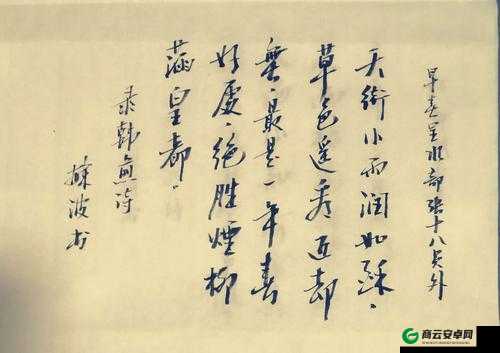 早春呈水部張十八员外
天街小雨潤如酥、
草色遥看近却
無、最是一年春
好處、絕勝煙柳
滿皇都。
录韩愈诗
波书
商云安卓网